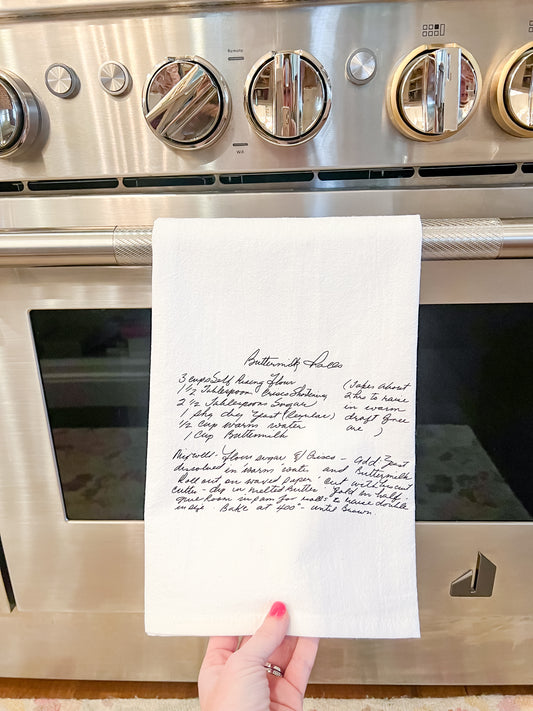 Remote
WA
Buttermilk Rolls
3 cups Self Rising Flour
1 ½ Tablespoon Crisco Shortening
2 ½ Tablespoons Sugar
1 pkg dry Yeast (Regular)
½ cup warm water
1 Cup Buttermilk
(Takes about
2 hrs to raise
in warm
draft free
)
Mix well: Flour sugar & Crisco - add Yeast
dissolved in warm water and Buttermilk
Roll out on waxed paper. Cut with biscuit
cutter - dip in melted Butter. Fold in half.
Give Room in pan for rolls to raise double
in size. Bake at 400° - until Brown